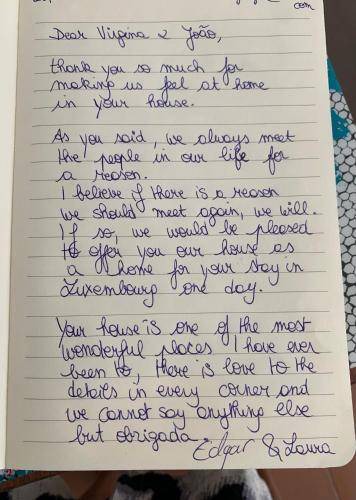 com
Dear Virgina & João,
thank you so much for
making us feel at home
in your house.
As you said, we always meet
the people in our life for
a reason.
I believe if there is a reason
we should meet again, we will.
If so, we would be pleased
to offer you our house as
a home for your stay in
Luxembourg one day.
Your house is one of the most
wonderful places I have ever
been to, there is love to the
details in every corner and
we cannot say anything else
but obrigada
Edgar & Laura